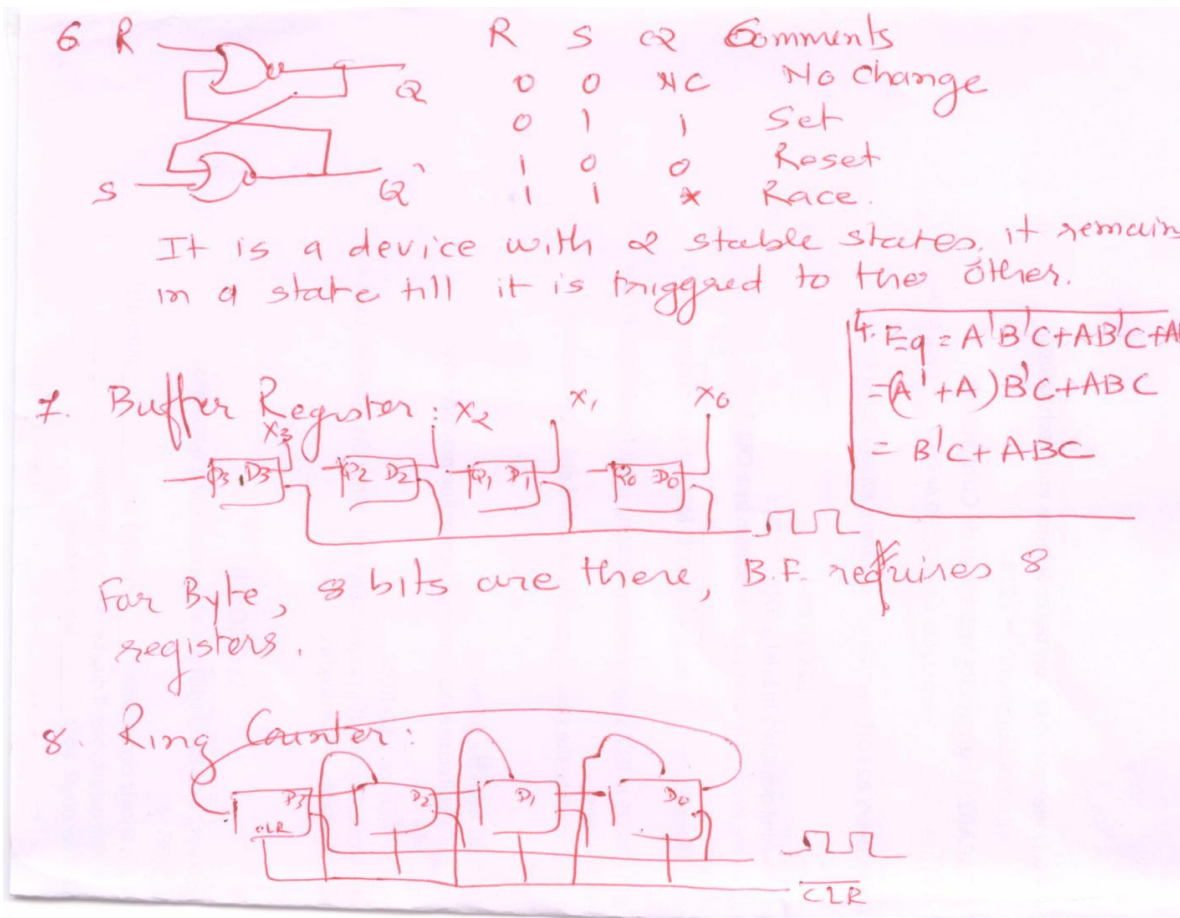 6 R
R S Q Comments
0 0 NC No Change
0 1 1 Set
1 0 0 Reset
1 1 * Race.
Q
S
Q'
It is a device with 2 stable states. it remain
in a state till it is triggred to the other.
4. Eq = A'B'C+AB'C+A
=(A'+A)B'C+ABC
= B'C+ABC
7. Buffer Register:
X3 X2 X1 X0
D3 Q2 D2 Q1 D1 Q0 D0
For Byte, 8 bits are there, B.F. requires 8
registers.
8. Ring Counter:
D3 D2 D1 D0
CLR
CLR